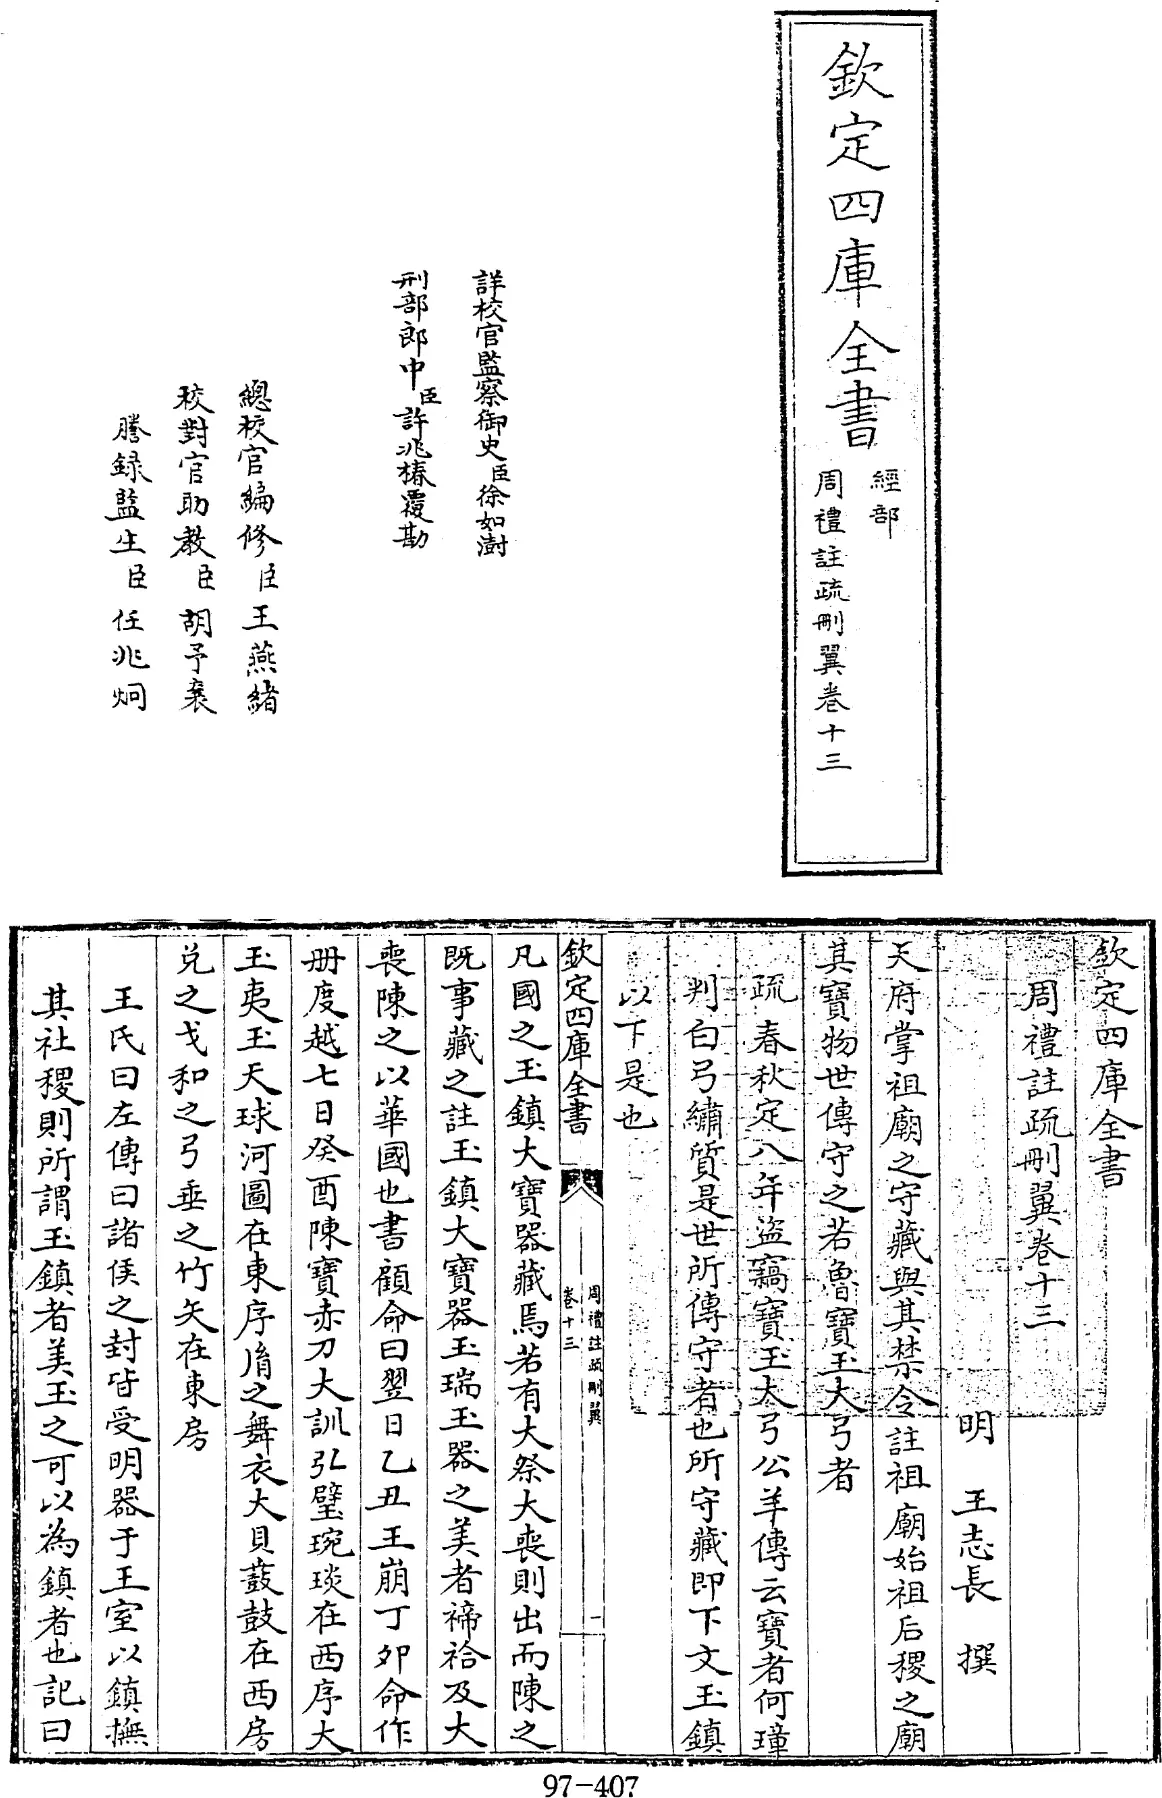 欽定四庫全書
經部
周禮註疏刪翼卷十三
詳校官監察御史臣徐如澍
刑部郎中臣許兆椿覆勘
總校官編修臣王燕緒
校對官助教臣胡予襄
謄録監生臣任兆炯
欽定四庫全書
周禮註疏刪翼卷十三
明 王志長 撰
天府掌祖廟之守藏與其禁令註祖廟始祖后稷之廟
其寶物世傳守之若魯寶玉大弓者
疏 春秋定八年盜竊寶玉大弓公羊傳云寶者何璋
判白弓繡質是世所傳守者也所守藏即下文玉鎮
以下是也
欽定四庫全書
周禮註疏刪翼
卷十三
一
凡國之玉鎮大寶器藏焉若有大祭大喪則出而陳之
既事藏之註玉鎮大寶器玉瑞玉器之美者禘祫及大
喪陳之以華國也書顧命曰翌日乙丑王崩丁夘命作
冊度越七日癸酉陳寶赤刀大訓弘璧琬琰在西序大
玉夷玉天球河圖在東序胤之舞衣大貝鼖鼓在西房
兌之戈和之弓垂之竹矢在東房
王氏曰左傳曰諸侯之封皆受明器于王室以鎮撫
其社稷則所謂玉鎮者美玉之可以為鎮者也記曰
97-407